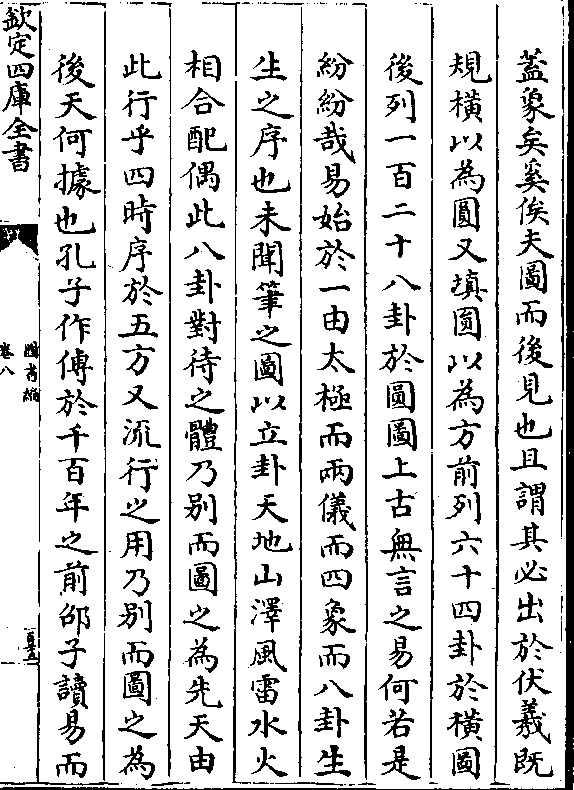 蓋象矣奚俟夫圖而後見也且謂其必出於伏羲既
規橫以為圓又填圓以為方前列六十四卦於橫圖
後列一百二十八卦於圓圖上古無言之易何若是
紛紛哉易始於一由太極而兩儀而四象而八卦生
生之序也未聞筆之圖以立卦天地山澤風雷水火
相合配偶此八卦對待之體乃别而圖之為先天由
此行乎四時序於五方又流行之用乃别而圖之為
後天何據也孔子作傳於千百年之前邵子讀易而
欽定四庫全書
圖書編
卷八